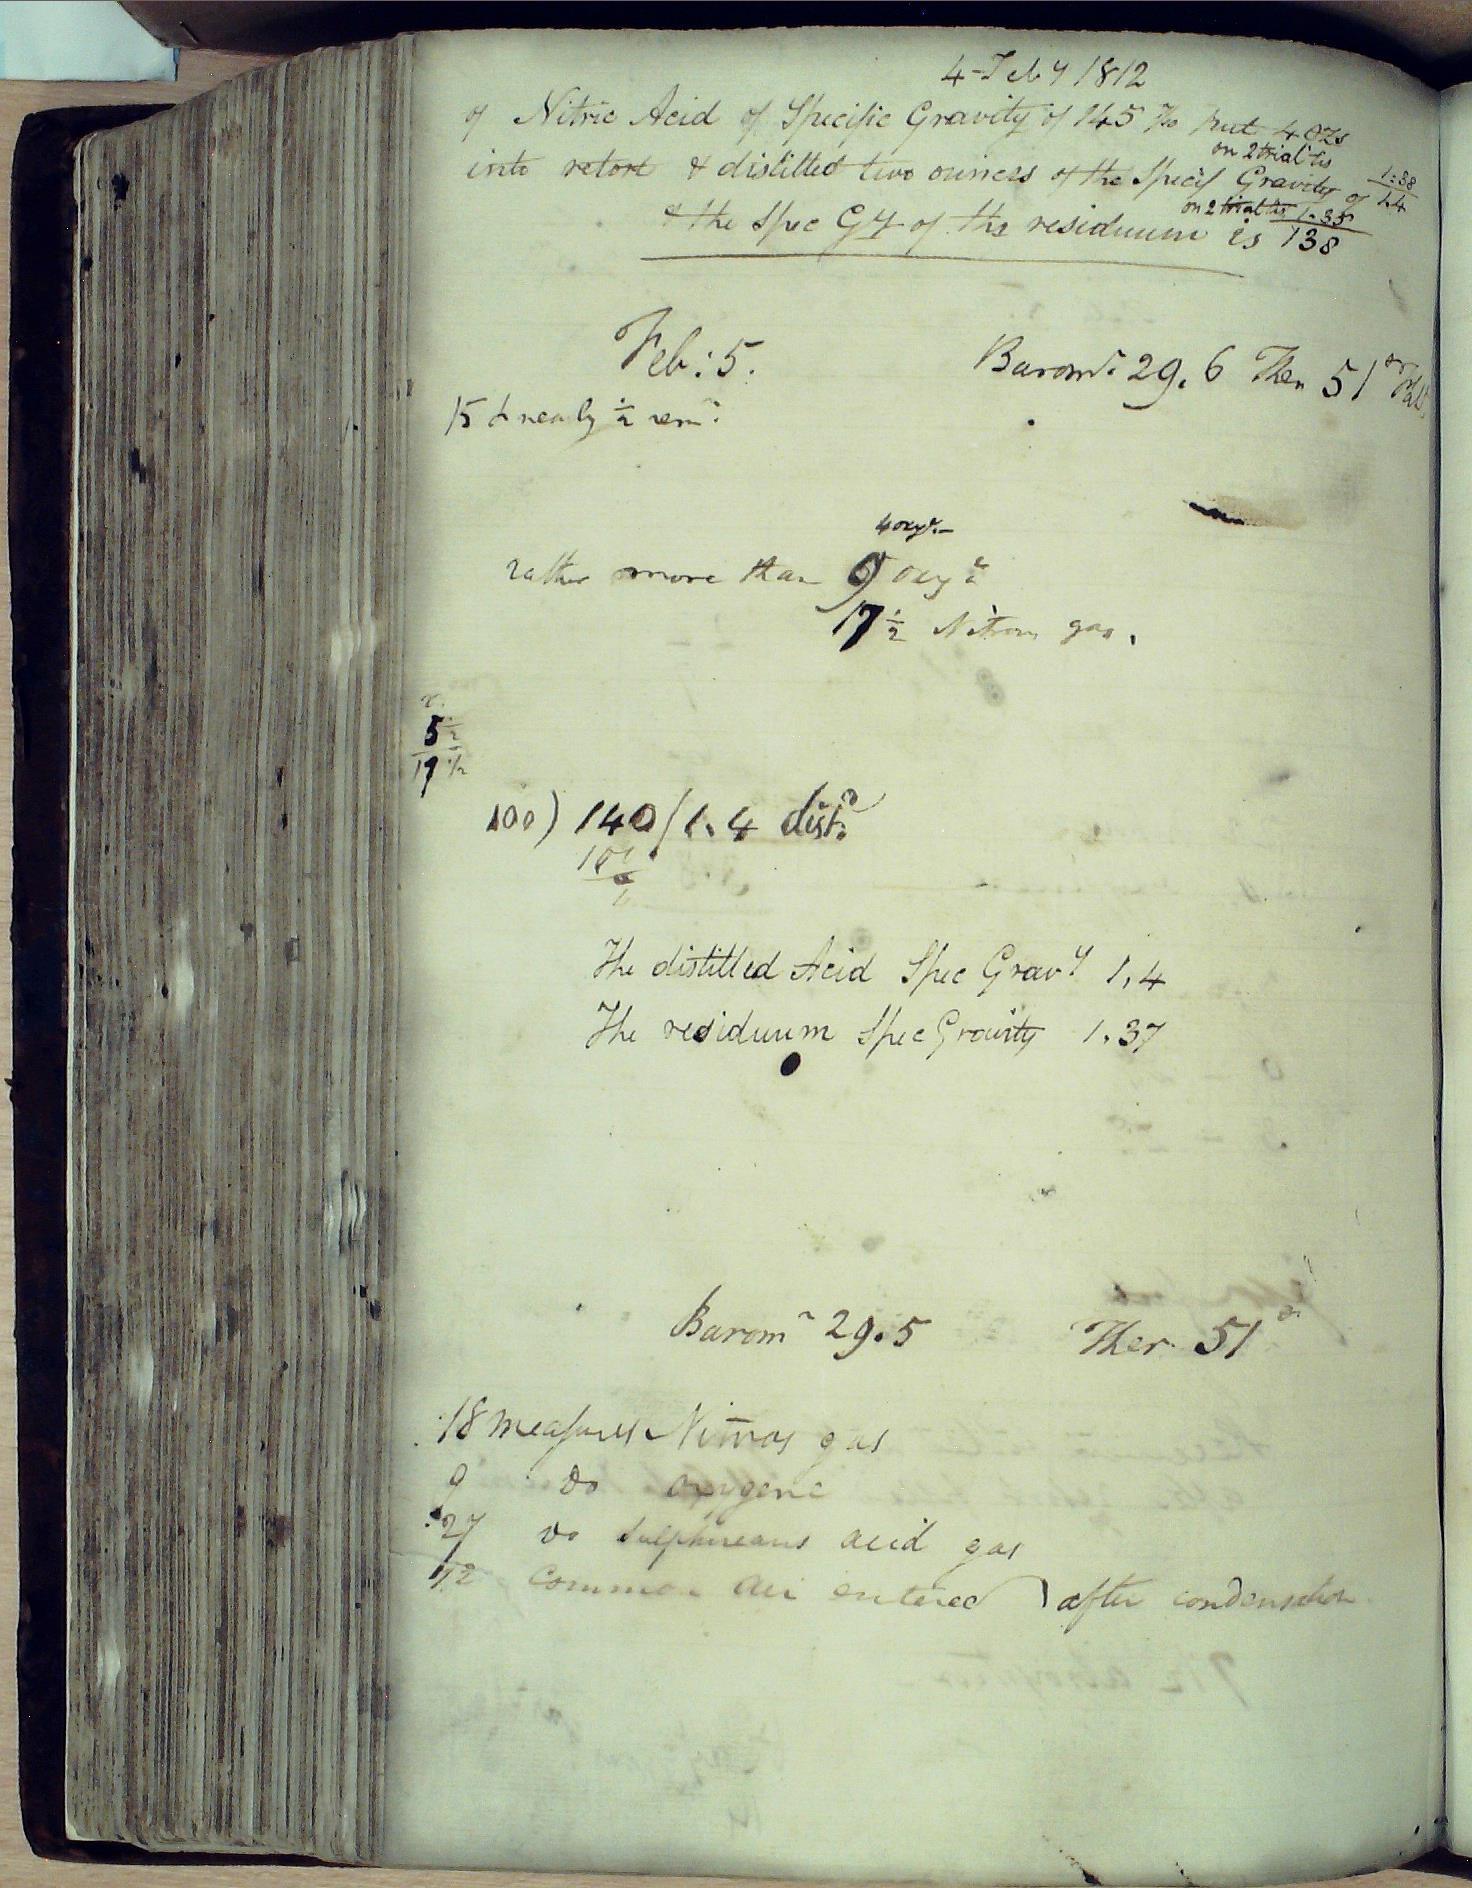 4 Feby 1812
of Nitric Acid of Specific Gravity of 145 put 4 ozs
on 2d trial tis
into retort & distilled two ounces of the Specif Gravity of 1.38 1.4
on 2 trial tis 1.35
& the Spec Gy of the residuum is 138
Feb: 5. Baromr 29.6 Ther 51°
15 & nearly ½ remr
4 oxyn
rather more than 9 oxyn
17 ½ Nitrous gas.
5 ½
17 ½
100) 140 (1.4 distd
100
The distilled Acid Spec Gravy 1.4
The residuum Spec Gravity 1.37
Baromr 29.5 Ther 51°
18 measures Nitrous gas
9 Do oxygene
27 Do Sulphureous acid gas
12 Common air entered after condensation